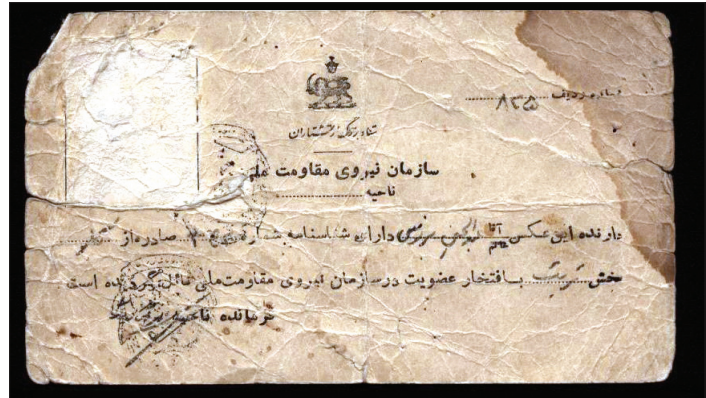 شماره ردیف ۸۳۵
ستاد بزرگ ارتشتاران
سازمان نیروی مقاومت ملی
ناحیه
دارنده این عکس آقا خانم دارای شناسنامه شماره صادره از
بخش بافتخار عضویت درسازمان نیروی مقاومت‌ملی نائل گردیده است
فرمانده ناحیه